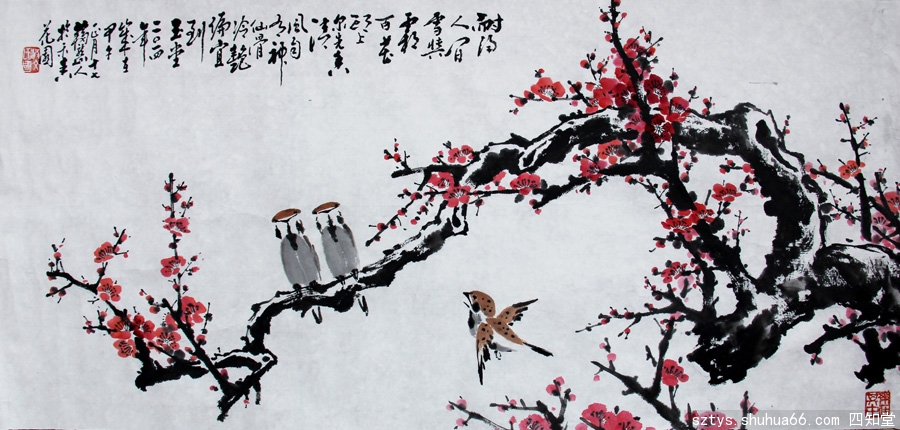 耐得
人间
雪與
霜
百花
头上
尔先香
清
风自
有神
仙骨
冷艷
偏宜
到
玉堂
二〇一四
年
甲午
正月十七
山人
花園
sztys.shuhua66.com 四知堂